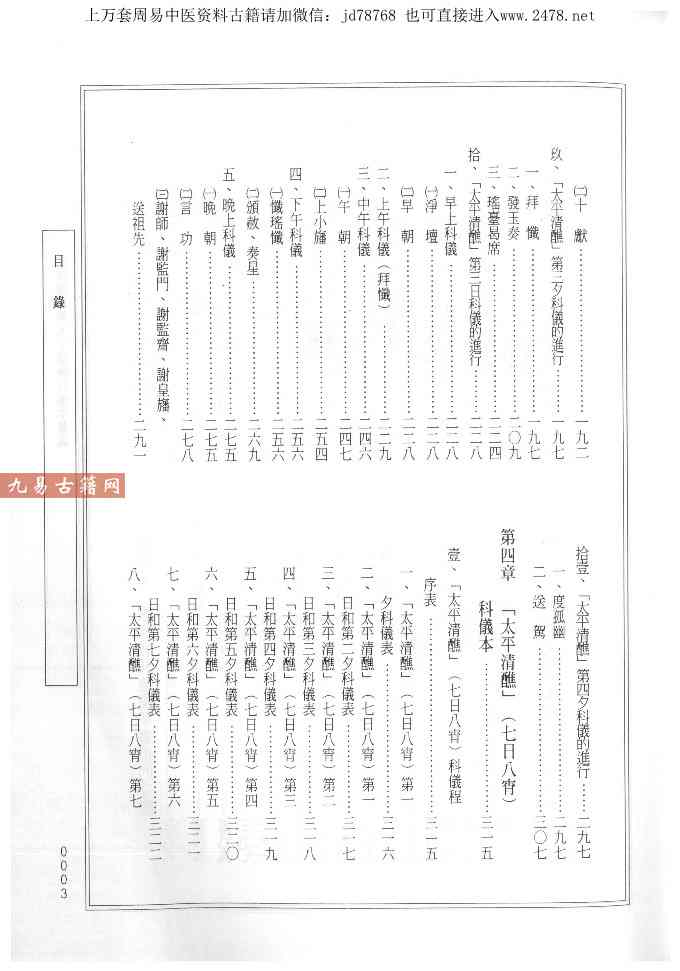 上万套周易中医资料古籍请加微信：jd78768 也可直接进入www.2478.net
㈡十　獻………一九二
玖、「太平清醮」第二夕科儀的進行………一九七
一、拜　懺………一九七
二、發玉奏………二〇九
三、瑤臺曷席………二二四
拾、「太平清醮」第三日科儀的進行………二二八
一、早上科儀………二二八
㈠淨　壇………二二八
㈡早　朝………二二八
二、上午科儀（拜懺）………二二九
三、中午科儀………二四六
㈠午　朝………二四七
㈡上小旛………二五四
四、下午科儀………二五六
㈠懺瑤懺………二五六
㈡頒赦、奏星………二六九
五、晚上科儀………二七五
㈠晚　朝………二七五
㈡言　功………二七八
㈢謝師、謝監門、謝監齋、謝皇旛、
送祖先………二九一
拾壹、「太平清醮」第四夕科儀的進行……二九七
一、度孤幽………二九七
二、送　駕………三〇七
第四章　「太平清醮」（七日八宵）
科儀本………三一五
壹、「太平清醮」（七日八宵）科儀程
序表………三一五
一、「太平清醮」（七日八宵）第一
夕科儀表………三一六
二、「太平清醮」（七日八宵）第一
日和第二夕科儀表………三一七
三、「太平清醮」（七日八宵）第二
日和第三夕科儀表………三一八
四、「太平清醮」（七日八宵）第三
日和第四夕科儀表………三一九
五、「太平清醮」（七日八宵）第四
日和第五夕科儀表………三二〇
六、「太平清醮」（七日八宵）第五
日和第六夕科儀表………三二一
七、「太平清醮」（七日八宵）第六
日和第七夕科儀表………三二二
八、「太平清醮」（七日八宵）第七
目　錄
0003
九易古籍网